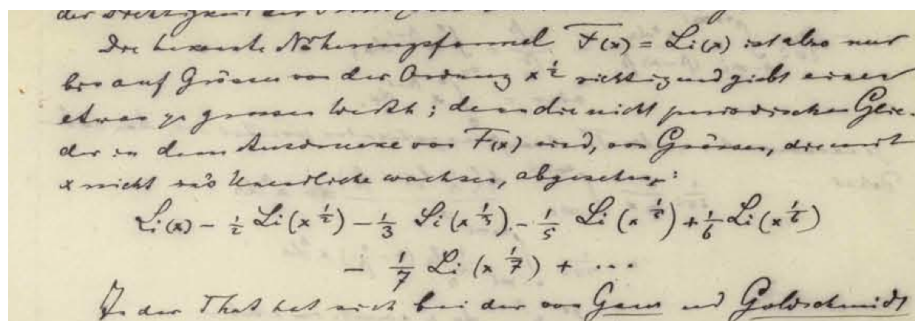 der Dichtigkeit der
Die bekannte Näherungsformel F(x) = Li(x) ist also nur
bis auf Grössen von der Ordnung x^½ richtig und giebt einen
etwas zu grossen Werth; denn die nicht periodischen Glie-
der in dem Ausdrucke von F(x) sind, von Grössen, die mit
x nicht in's Unendliche wachsen, abgesehen:
Li(x) - ½ Li(x^½) - ⅓ Li(x^⅓) - ⅕ Li(x^⅕) + ⅙ Li(x^⅙)
- 1/7 Li(x^1/7) + ···
In der That hat sich bei der von Gauss und Goldschmidt